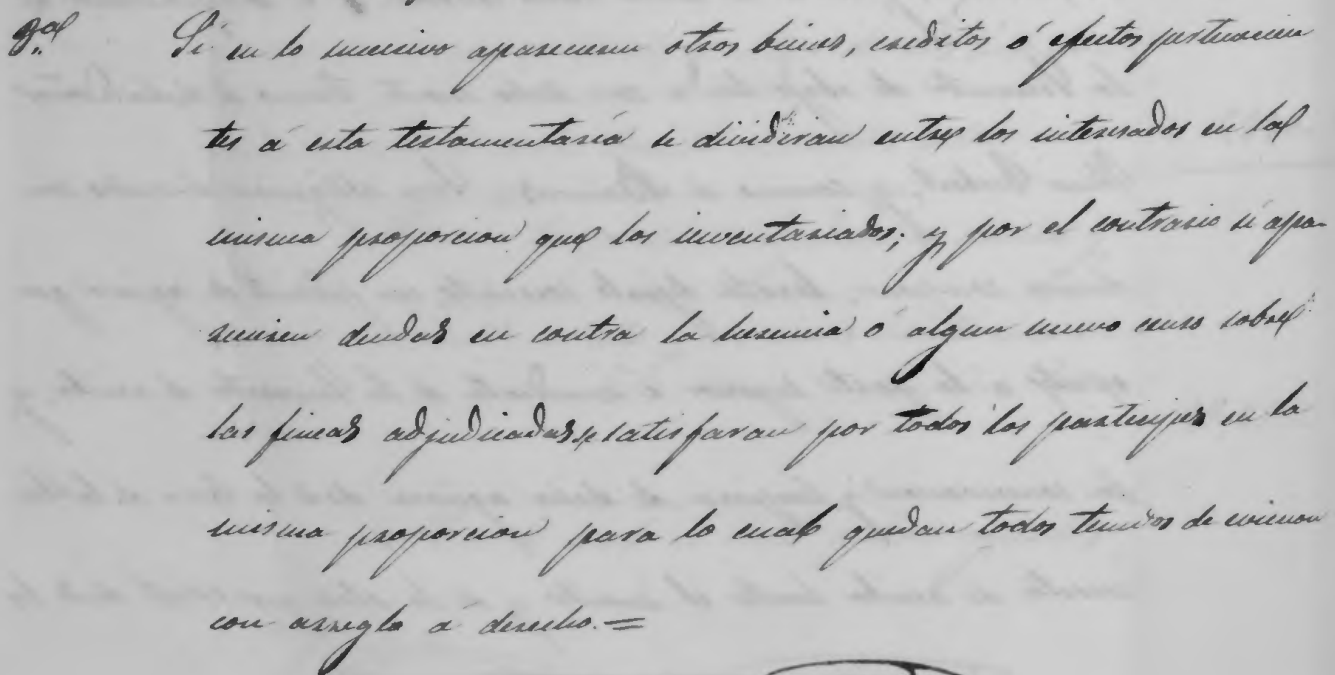 3ª Si en lo sucesivo apareciesen otros bienes, creditos ó efectos pertenecien
tes á esta testamentaría se dividiran entre los interesados en la
misma proporcion que los inventariados; y por el contrario si apa-
reciesen deudas en contra la herencia ó algun nuevo censo sobre
las fincas adjudicadas, se satisfaran por todos los participes en la
misma proporcion para lo cual quedan todos tenidos de eviccion
con arreglo á derecho.=